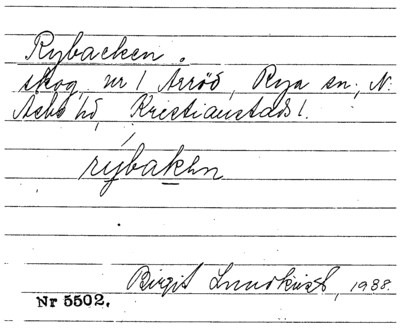 Rybacken.
skog, nr 1 Arröd, Rya sn, N.
Åsbo hd, Kristianstads l.
rybakɘn
Birgit Lundkvist, 1938.
Nr 5502.